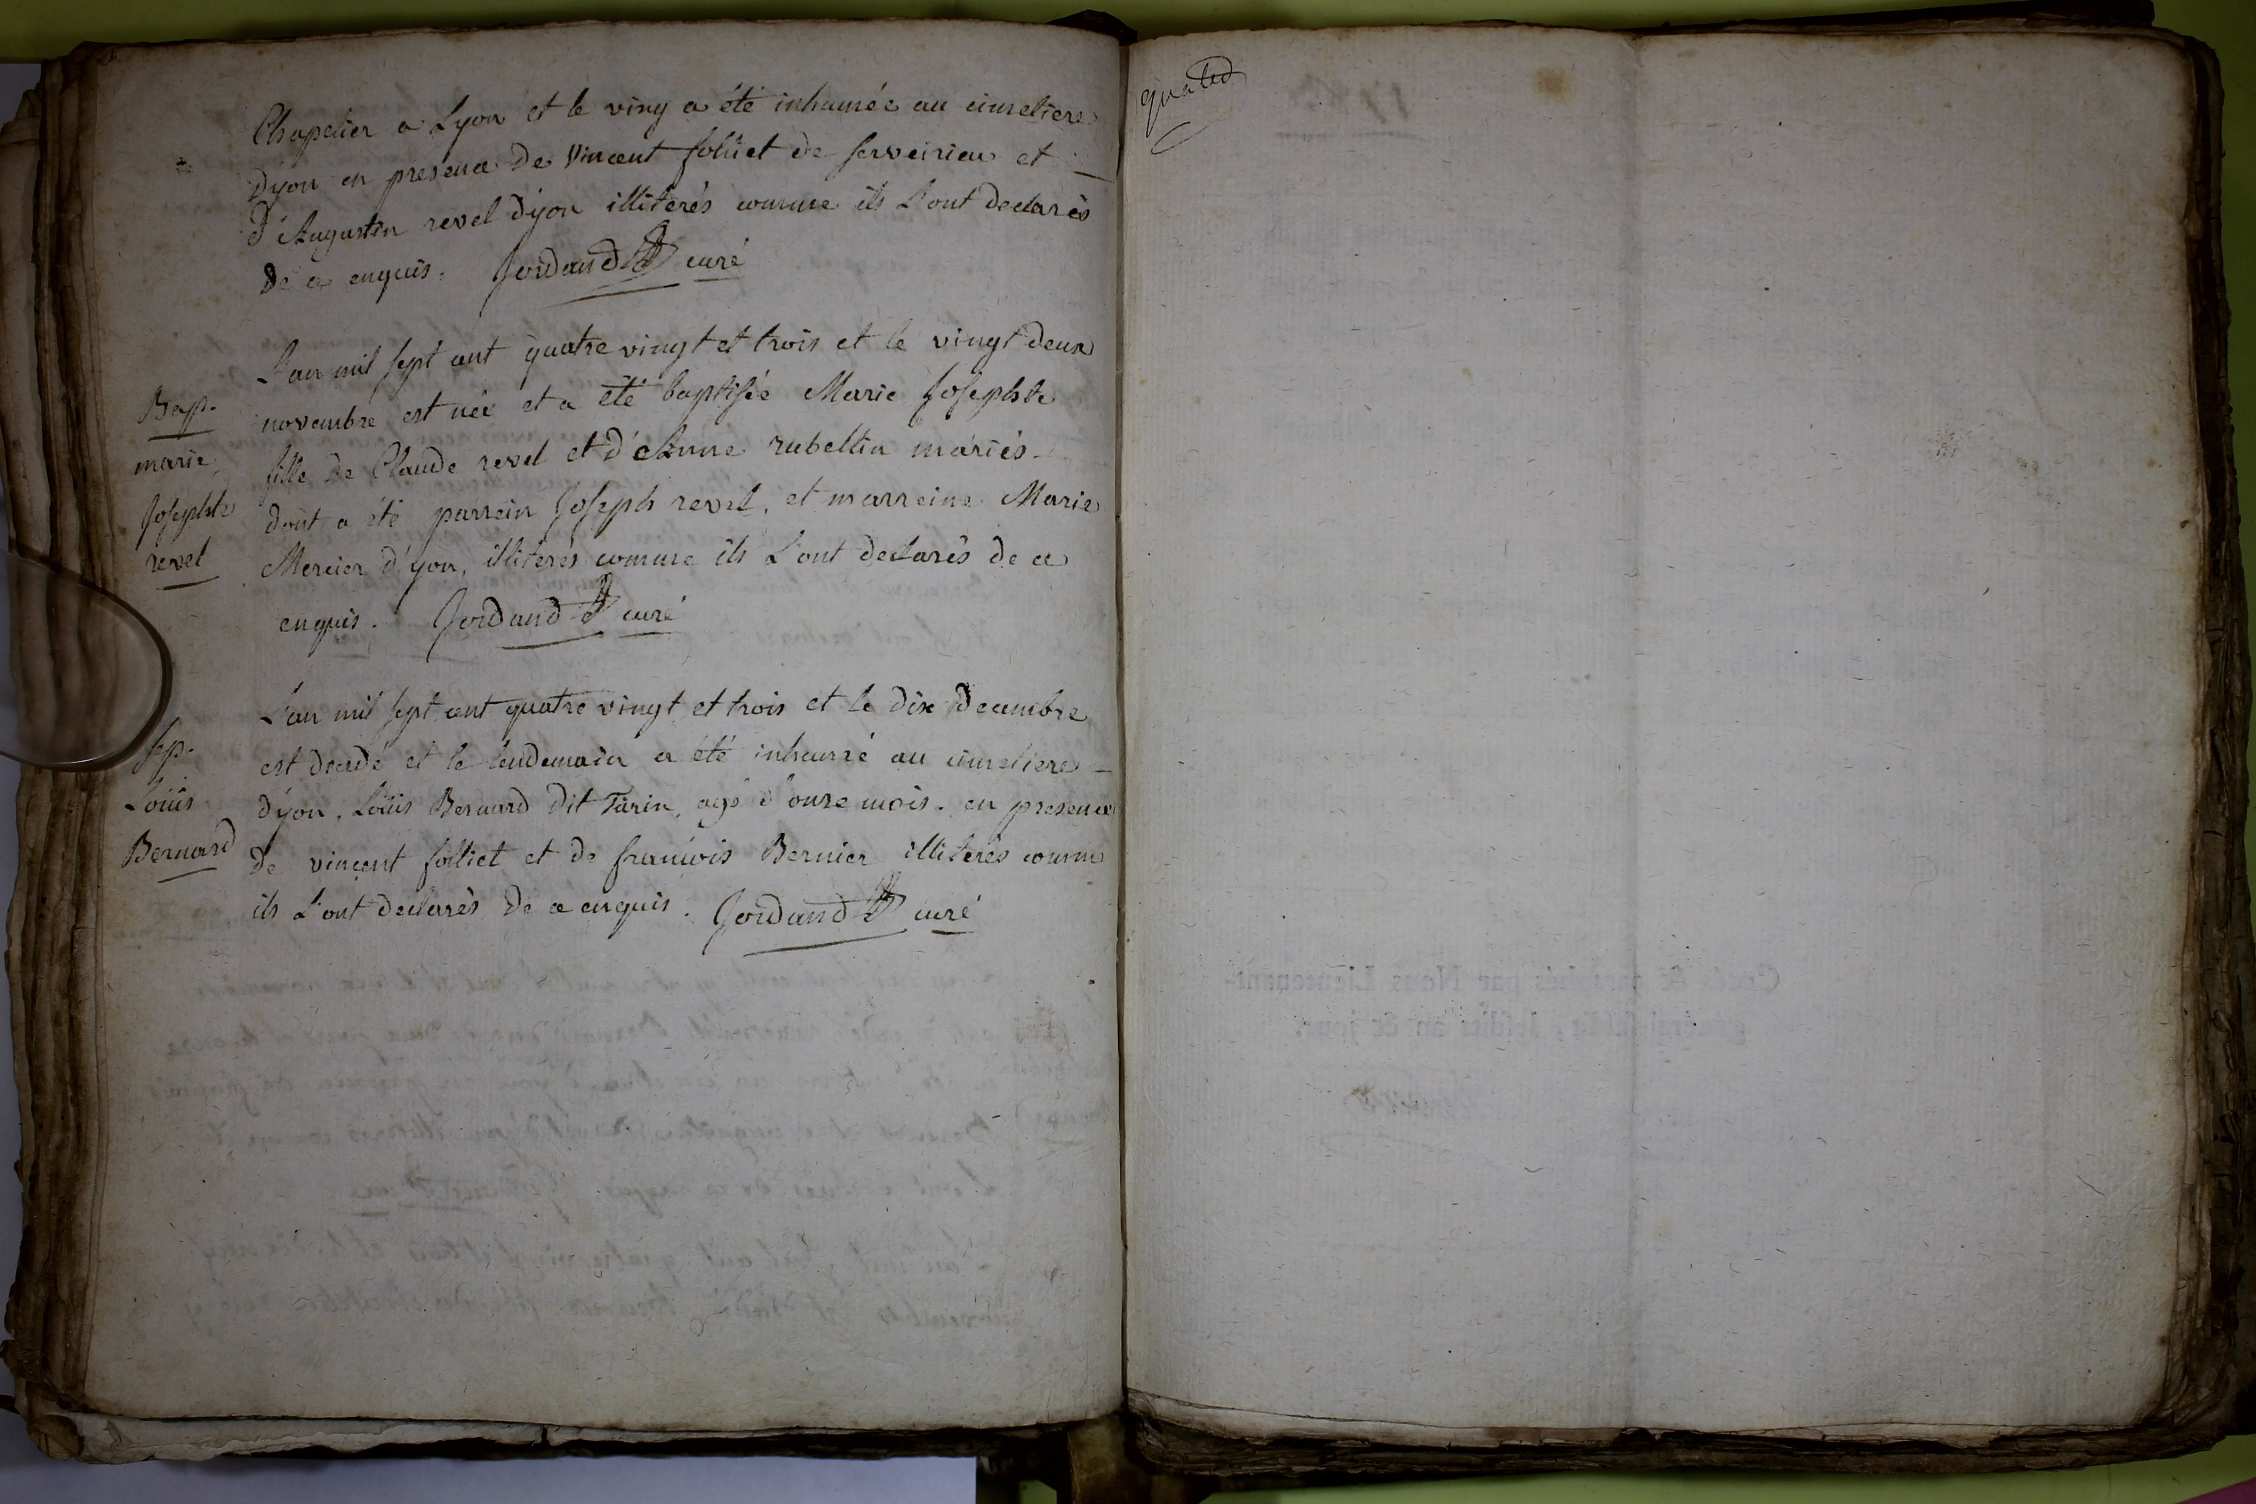 Chapelier a Lyon et le ving a été inhumée au cimetiere
Dyon en presence de Vincent folliet de serveirieu et
d'Augustin revel dyon illiterés comme ils L'ont declarés
de ce enquis. Jordand curé
L'an mil sept cent quatre vingt et trois et le vingt deux
Bap. novembre est née et a été baptisée Marie Josephte
marie fille de Claude revel et d'Anne rubellin mariés
Josephte dont a été parrein Joseph revel, et marreine Marie
revel Mercier d'yon, illiterés comme ils L'ont declarés de ce
enquis. Jordand curé
L'an mil sept cent quatre vingt et trois et le dix decembre
sep. est decedé et le lendemain a été inhumé au cimetiere
Loüis d'yon, Loüis Bernard dit Turin, agé d'onze mois. en presence
Bernard de vincent folliet et de francois Bernier illiterés comme
ils L'ont declarés de ce enquis. Jordand curé